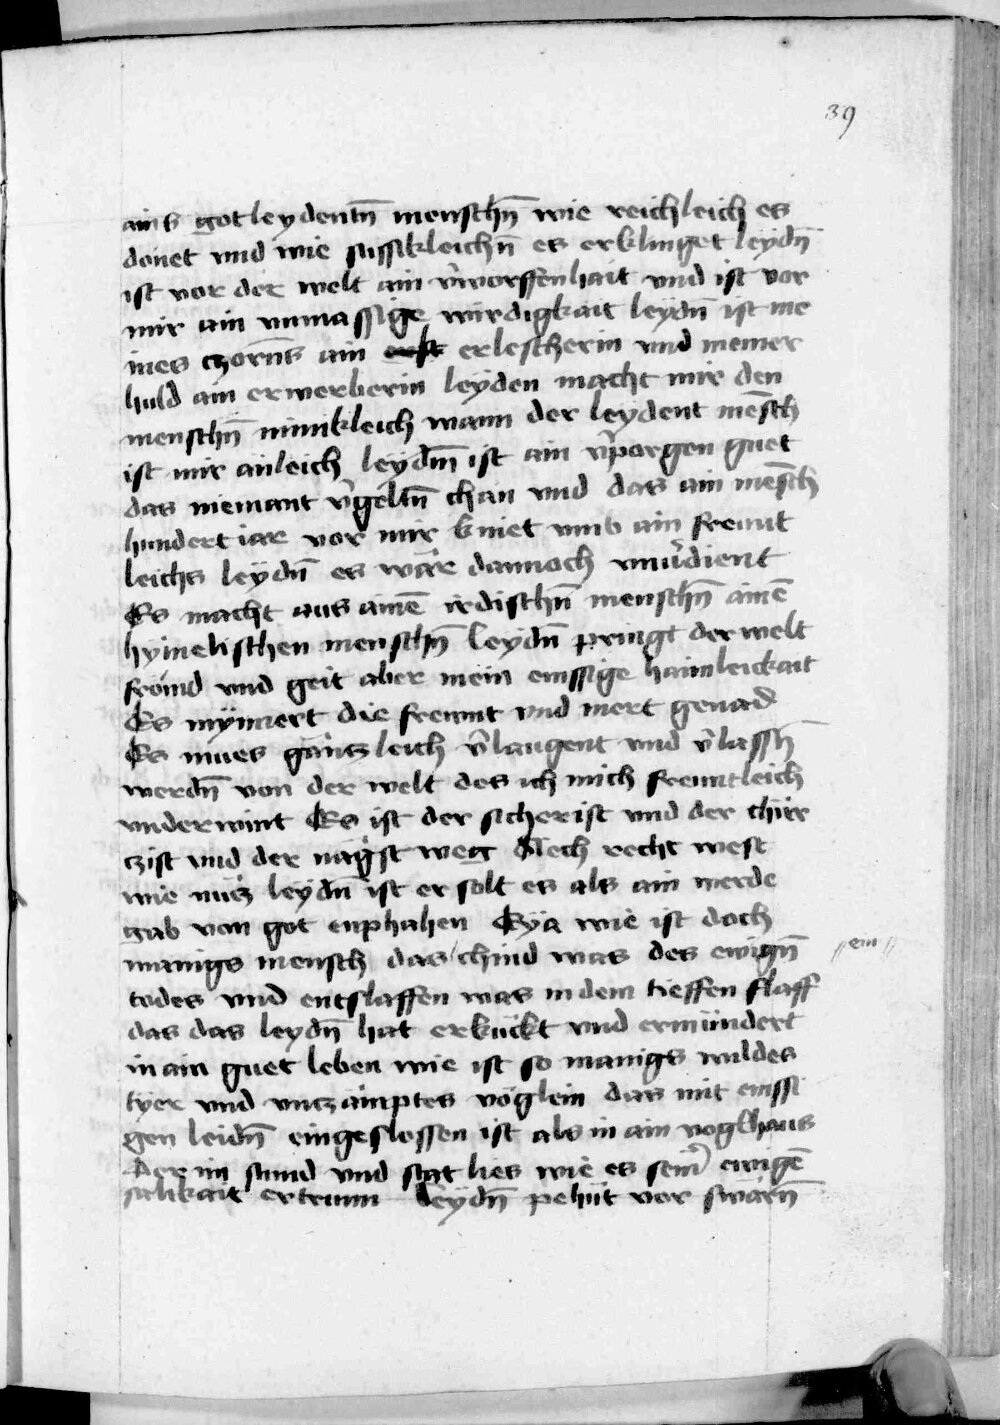 39
ains got leydentn̄ menschn̄ wie reichleich es
donet vnd wie sussikleichn̄ es erklinget leydn̄
ist vor der welt ain v̾worffenhait vnd ist vor
mir ain vnmassige wirdigkait leydn̄ ist me
ines czorns ain erlescherin vnd meiner
huld ain erwerberin leyden macht mir den
menschn̄ minikleich wann der leydent mēsch
ist mir anleich leydn̄ ist ain v̾porgen guet
das niemant v̾geltn̄ chan vnd das ain mensch
hundert iar vor mir kniet vmb ain freunt
leichs leydn̄ es wär dannoch vnuͬdient
Es macht aus ainē irdischn̄ menschn̄ ainē
hymelischen menschn̄ leydn̄ pringt der welt
frömd vnd geit aber mein emssige haimleickait
Es mynnert die freunt vnd mert genad
Es mues gäntzleich v̾laugent vnd v̾lassn̄
werdn̄ von der welt des ich mich freuntleich
vnderwint Es ist der sicherist vnd der chür
czist vnd der nägst weg Nech recht west
wie nütz leydn̄ ist er solt es als ain werde
gab von got enphahen Eya wie ist doch
manigs mensch das chind was des ewign̄ // ein //
todes vnd entslaffen was in dem tieffen slaff
das das leydn̄ hat erkückt vnd ermündert
in ain guet leben wie ist so manigs wildes
tyer vnd vnczämptes vöglein das mit emssi
gen leidn̄ eingeslossen ist als in ain voglhaus
Der im stund vnd stat lies wie es seinͬ ewigē
salikait ertrunn Leydn̄ pehüt vor swärn̄